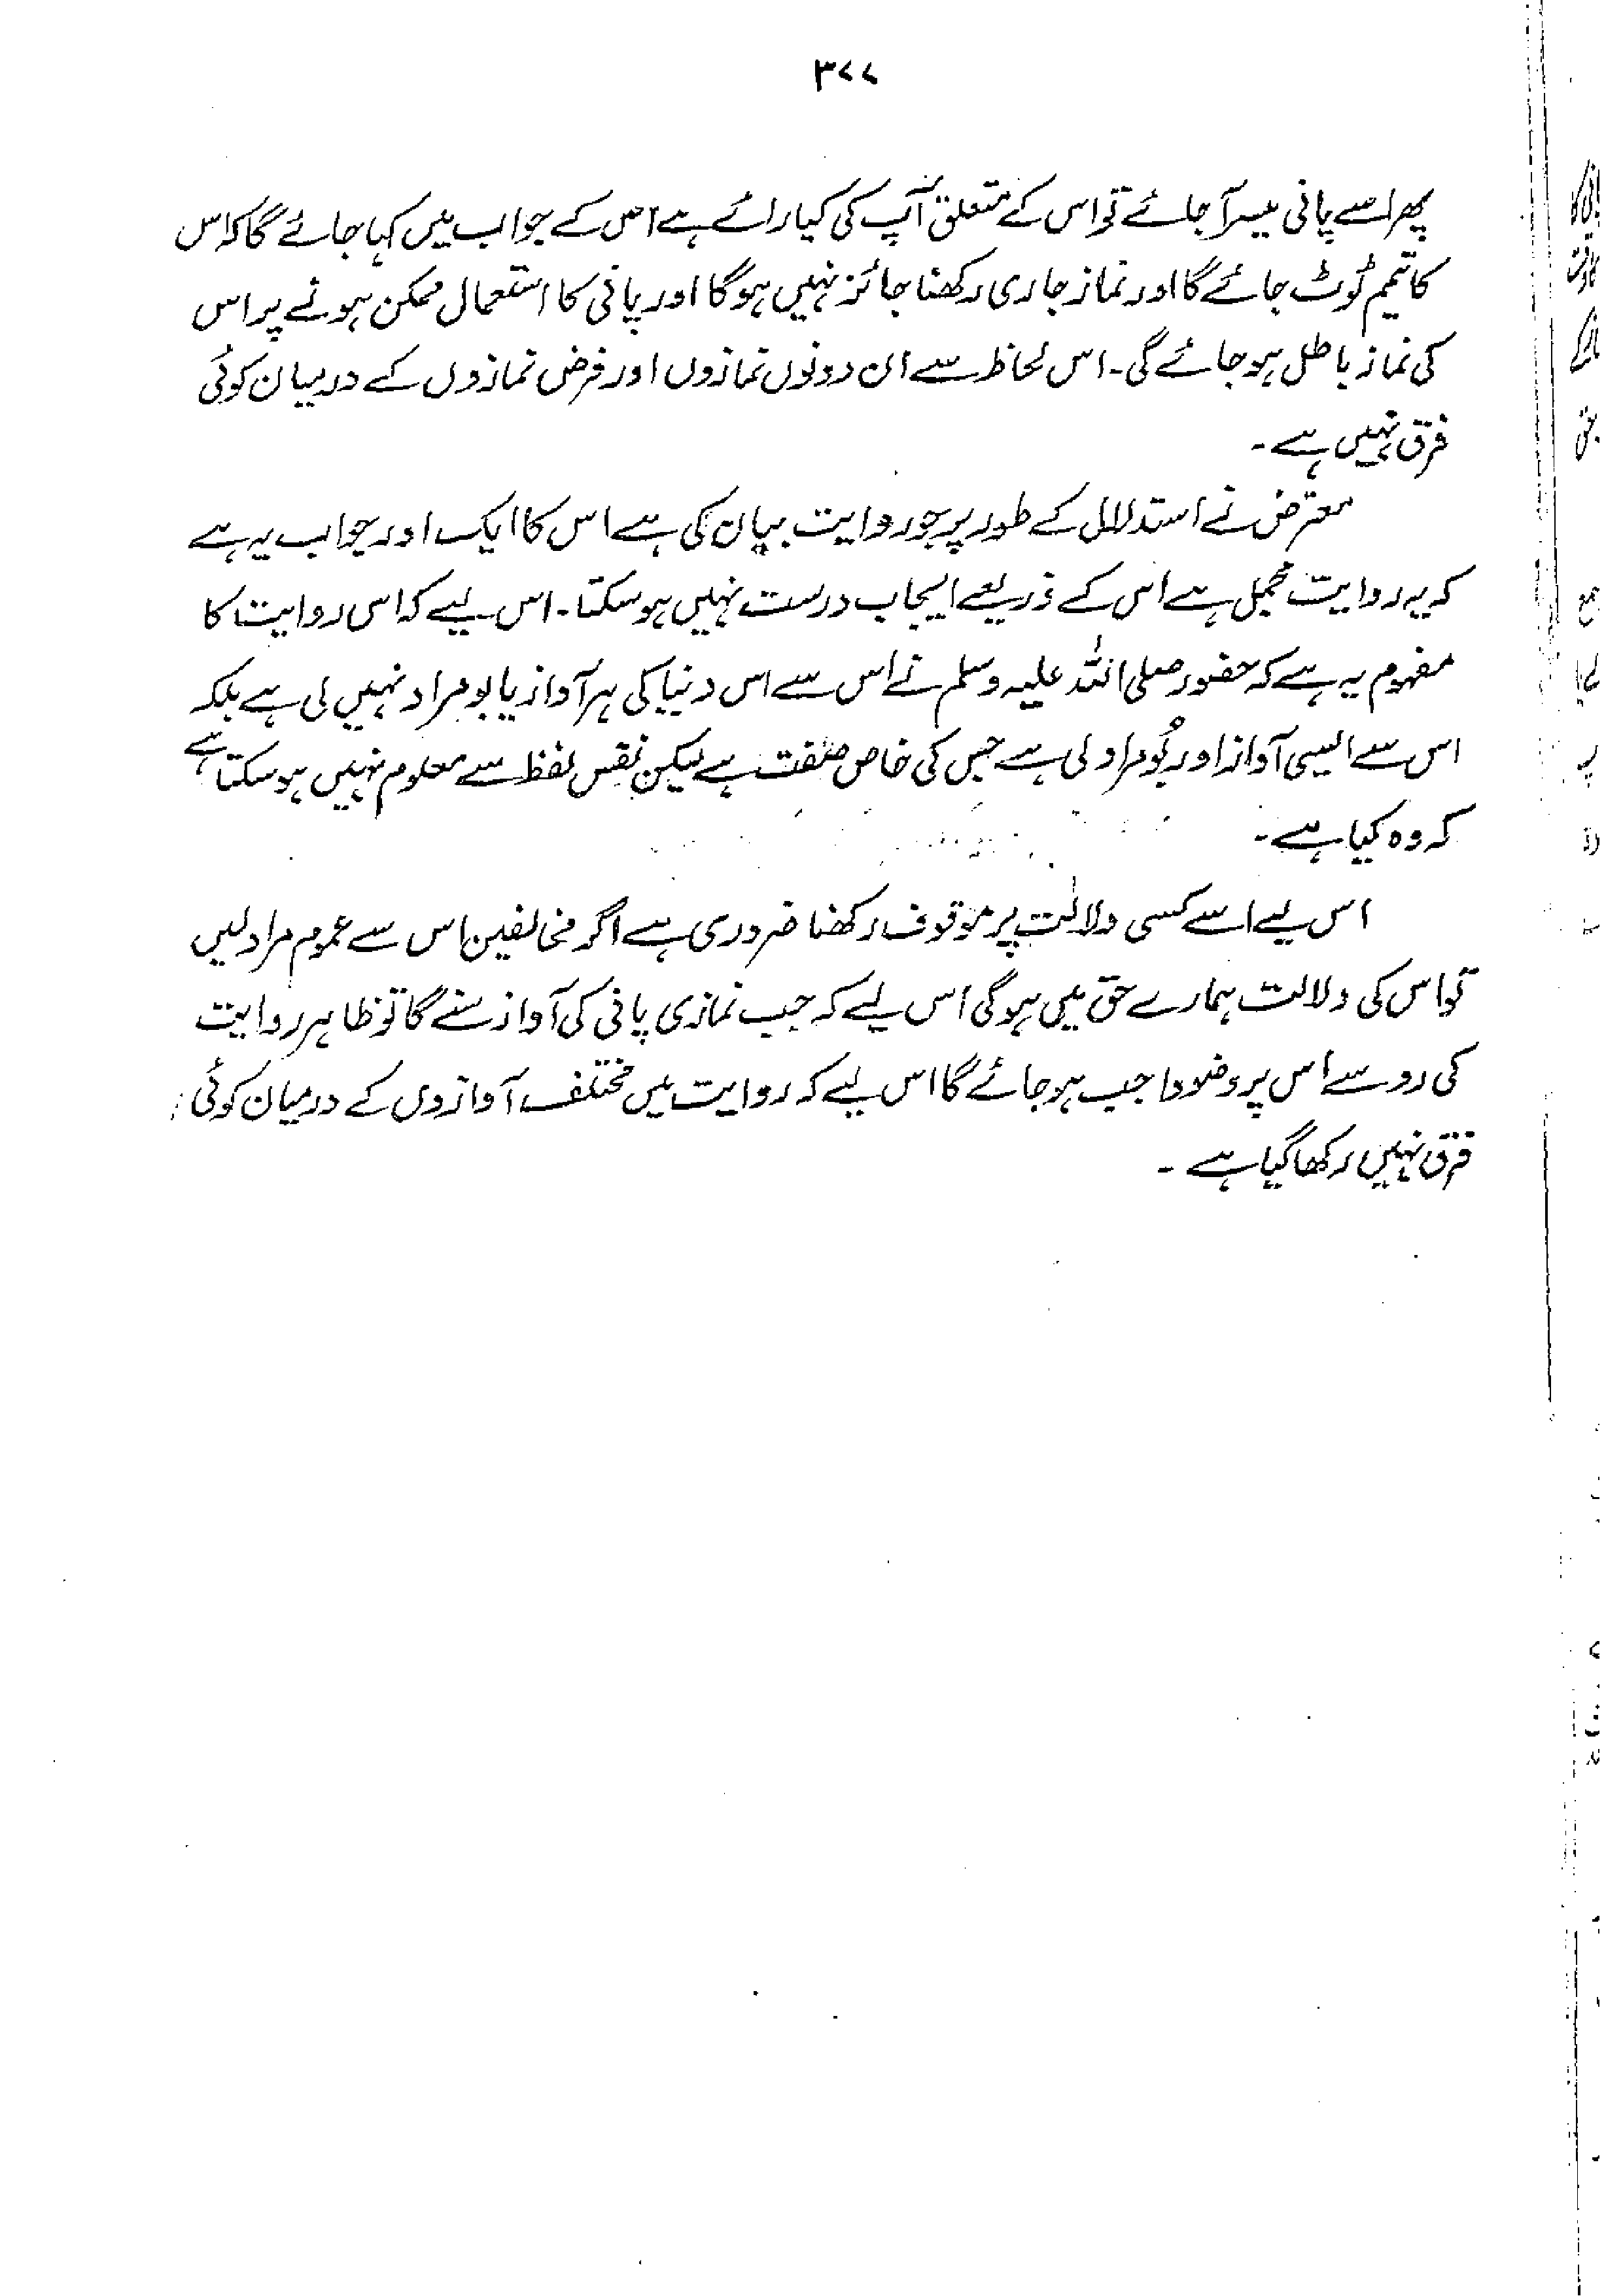 ۳۷۷
پھر اسے پانی میسر آجائے تو اس کے متعلق آپ کی کیا رائے ہے اس کے جواب میں کہا جائے گا کہ اس
کا تیمم ٹوٹ جائے گا اور نماز جاری رکھنا جائز نہیں ہوگا اور پانی کا استعمال ممکن ہونے پر اس
کی نماز باطل ہو جائے گی۔ اس لحاظ سے ان دونوں نمازوں اور فرض نمازوں کے درمیان کوئی
فرق نہیں ہے۔
معترض نے استدلال کے طور پر جو روایت بیان کی ہے اس کا ایک اور جواب یہ ہے
کہ یہ روایت مجمل ہے اس کے ذریعے ایجاب درست نہیں ہو سکتا۔ اس لیے کہ اس روایت کا
مفہوم یہ ہے کہ حضور صلی اللہ علیہ وسلم نے اس سے اس دنیا کی ہر آواز یا بو مراد نہیں لی ہے بلکہ
اس سے ایسی آواز اور بُو مراد لی ہے جس کی خاص صفت ہے لیکن نفس لفظ سے معلوم نہیں ہو سکتا ہے
کہ وہ کیا ہے۔
اس لیے اسے کسی دلالت پر موقوف رکھنا ضروری ہے اگر مخالفین اس سے عموم مراد لیں
تو اس کی دلالت ہمارے حق میں ہوگی اس لیے کہ جب نمازی پانی کی آواز سنے گا تو ظاہر روایت
کی رو سے اس پر وضو واجب ہو جائے گا اس لیے کہ روایت میں مختلف آوازوں کے درمیان کوئی
فرق نہیں رکھا گیا ہے۔